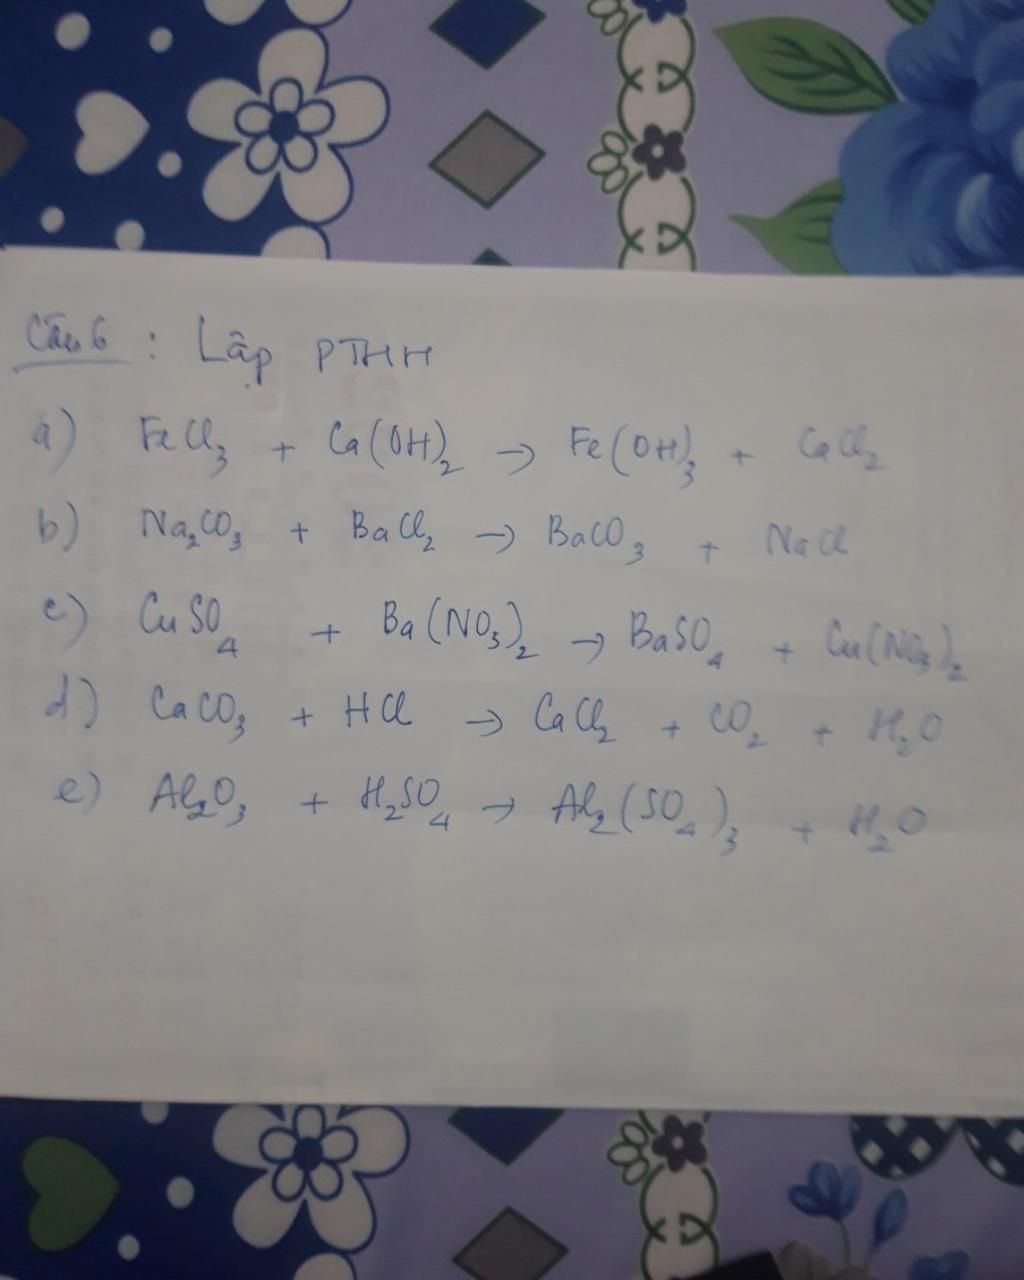 Câu 6 : Lập PTHH
a) FeCl₃ + Ca(OH)₂ → Fe(OH)₃ + CaCl₂
b) Na₂CO₃ + BaCl₂ → BaCO₃ + NaCl
c) CuSO₄ + Ba(NO₃)₂ → BaSO₄ + Cu(NO₃)₂
d) CaCO₃ + HCl → CaCl₂ + CO₂ + H₂O
e) Al₂O₃ + H₂SO₄ → Al₂(SO₄)₃ + H₂O